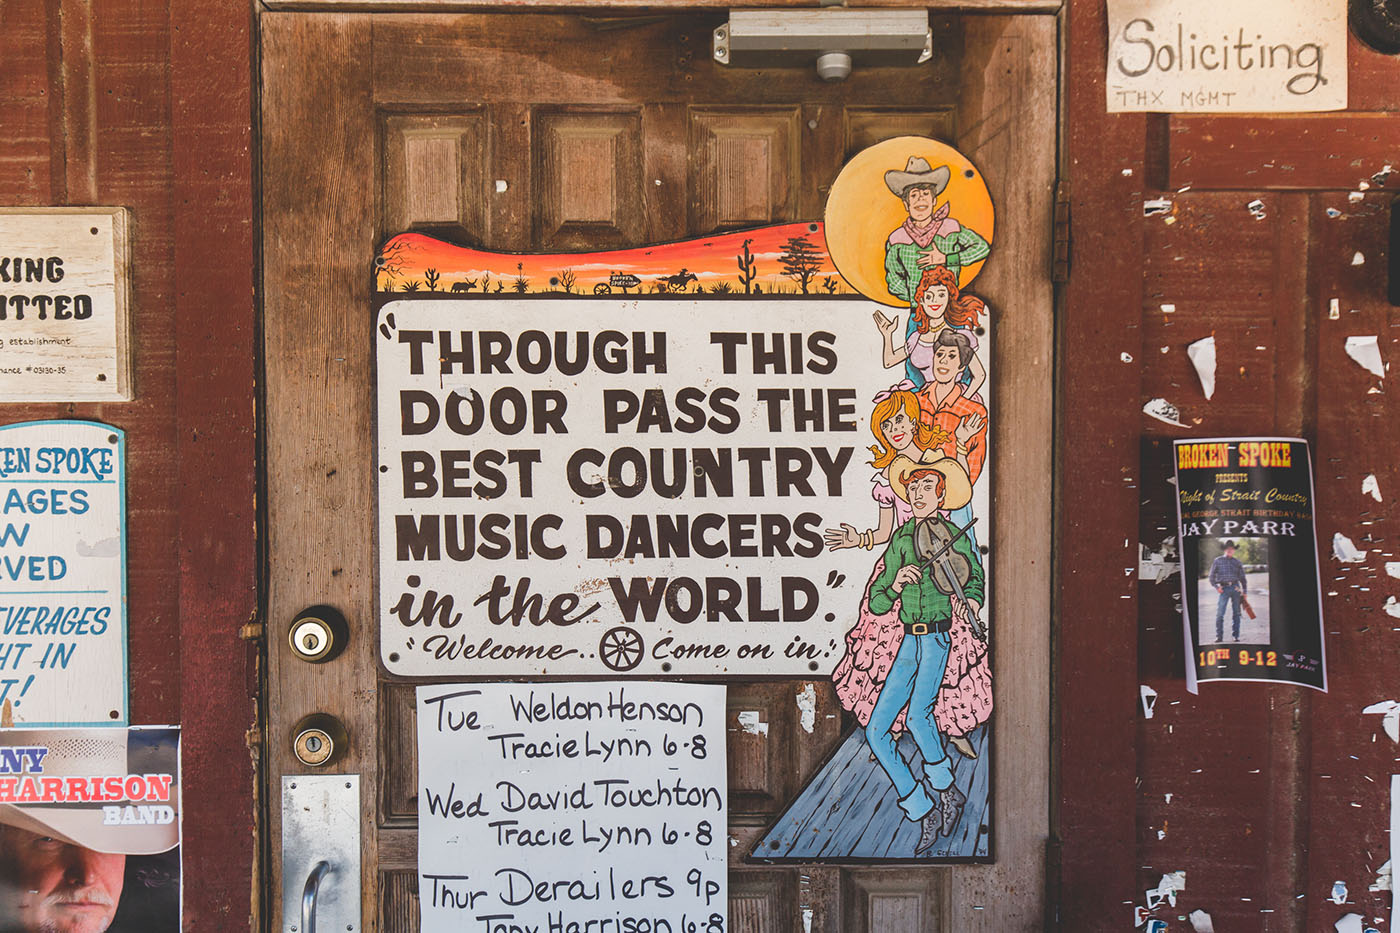 Soliciting
THX MGMT
KING
ITTED
establishment
#03130-35
EN SPOKE
AGES
W
RVED
EVERAGES
HT IN
T!
NY
HARRISON
BAND
BROKEN
SPOKE
"THROUGH THIS
DOOR PASS THE
BEST COUNTRY
MUSIC DANCERS
in the WORLD."
"Welcome.. Come on in."
Tue Weldon Henson
Tracie Lynn 6-8
Wed David Touchton
Tracie Lynn 6-8
Thur Derailers 9p
Tony Harrison 6-8
BROKEN SPOKE
PRESENTS
Night of Strait Country
GEORGE STRAIT BIRTHDAY BASH
JAY PARR
10TH 9-12
JAY PARR